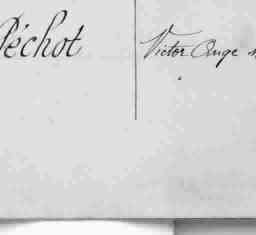 Péchot
Victor Ange